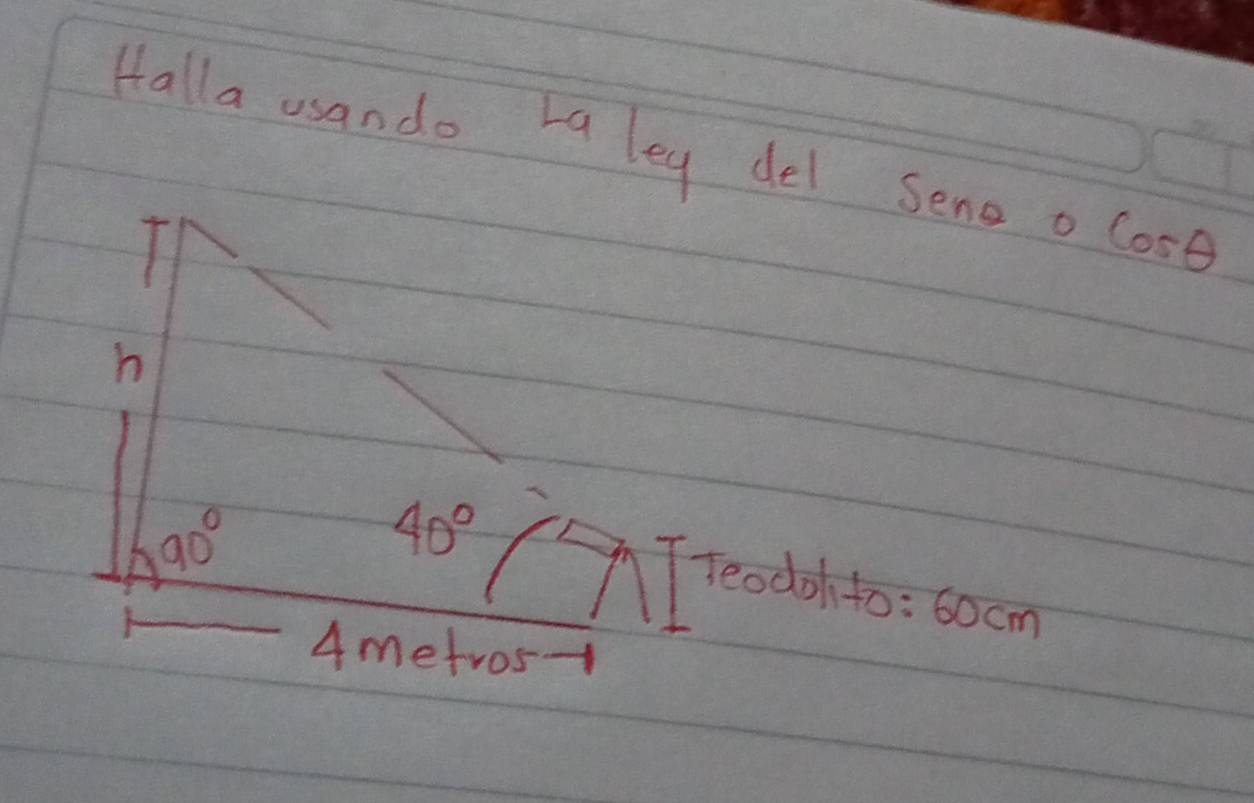 Halla usando La ley del Senθ o Cosθ
h
90°
40°
Teodolito: 60cm
4 metros